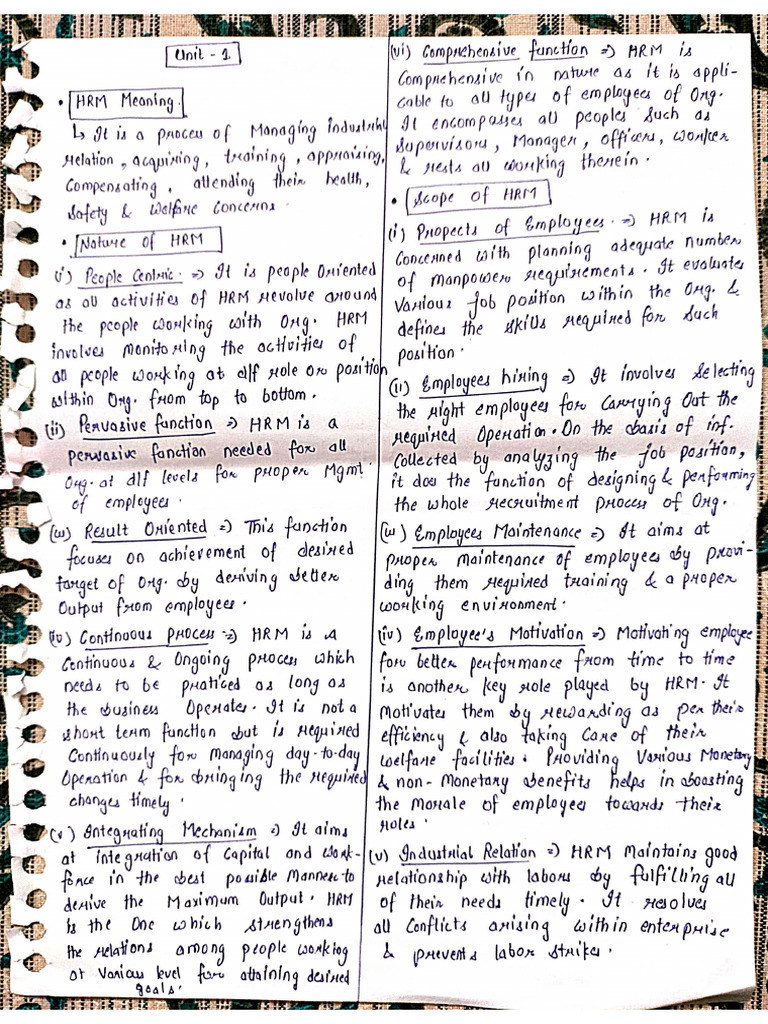 Unit - 1
• HRM Meaning.
↳ It is a process of Managing Industrial
relation, acquiring, training, appraising,
Compensating, attending their health,
Safety & Welfare Concerns.
• Nature of HRM
(i) People Centric. => It is people oriented
as all activities of HRM revolve around
the people working with Org. HRM
involves monitoring the activities of
all people working at d/f role or position
within Org. from top to bottom.
(ii) Pervasive function => HRM is a
pervasive function needed for all
Org. at d/f levels for proper Mgmt.
of employees.
(iii) Result Oriented => This function
focuses on achievement of desired
target of Org. by deriving better
Output from employees.
(iv) Continuous process => HRM is a
Continuous & Ongoing process which
needs to be practiced as long as
the business Operates. It is not a
short term function but is required
Continuously for managing day-to-day
Operation & for bringing the required
changes timely.
(v) Integrating Mechanism => It aims
at integration of Capital and work-
force in the best possible Manner to
derive the Maximum Output. HRM
is the One which strengthens
the relations among people working
at various level for attaining desired
goals.
(vi) Comprehensive function => HRM is
Comprehensive in nature as it is appli-
cable to all types of employees of Org.
It encompasses all peoples such as
Supervisors, Manager, officers, worker
& rests all working therein.
• Scope of HRM
(i) Propects of Employees. => HRM is
Concerned with planning adequate number
of manpower requirements. It evaluates
various job position within the Org. &
defines the skills required for such
position.
(ii) Employees hiring => It involves Selecting
the right employees for Carrying Out the
required Operation. On the basis of inf.
Collected by analyzing the job position,
it does the function of designing & performing
the whole recruitment process of Org.
(iii) Employees Maintenance => It aims at
proper maintenance of employees by provi-
ding them required training & a proper
working environment.
(iv) Employee's Motivation => Motivating employee
for better performance from time to time
is another key role played by HRM. It
Motivates them by rewarding as per their
efficiency & also taking Care of their
welfare facilities. Providing Various Monetary
& non-Monetary benefits helps in boosting
the Morale of employees towards their
roles.
(v) Industrial Relation => HRM Maintains good
relationship with labors by fulfilling all
of their needs timely. It resolves
all Conflicts arising within enterprise
& prevents labor strikes.